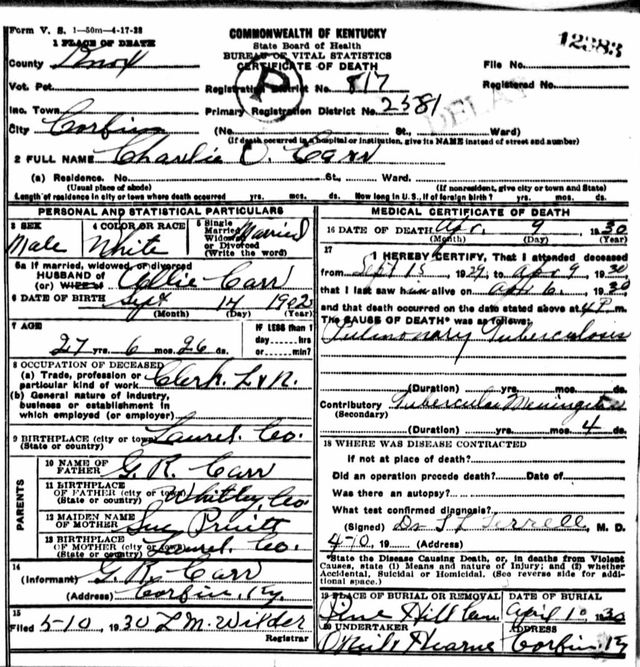 Form V. S. 1—50m—4-17-28
COMMONWEALTH OF KENTUCKY
State Board of Health
BUREAU OF VITAL STATISTICS
CERTIFICATE OF DEATH
12383
1 PLACE OF DEATH
County Knox
File No.
Vot. Pct.
Registration District No. 817
Registered No.
P
Inc. Town
Primary Registration District No. 2381
City Corbin
(No. St., Ward)
(If death occurred in a hospital or institution, give its NAME instead of street and number)
2 FULL NAME Charlie O. Carr
(a) Residence. No. St., Ward.
(Usual place of abode) (If nonresident, give city or town and State)
Length of residence in city or town where death occurred yrs. mos. ds. How long in U. S., if of foreign birth? yrs. mos. ds.
PERSONAL AND STATISTICAL PARTICULARS
3 SEX
Male
4 COLOR OR RACE
White
5 Single
Married
Widowed
or Divorced
(Write the word)
Married
5a If married, widowed, or divorced
HUSBAND of
(or) WIFE of
Ollie Carr
6 DATE OF BIRTH Sept 14 1902
(Month) (Day) (Year)
7 AGE
27 yrs. 6 mos. 26 ds.
IF LESS than 1
day hrs
or min?
8 OCCUPATION OF DECEASED
(a) Trade, profession or
particular kind of work Clerk L & N.
(b) General nature of industry,
business or establishment in
which employed (or employer)
9 BIRTHPLACE (city or town) Laurel Co.
(State or country)
PARENTS
10 NAME OF
FATHER G. R. Carr
11 BIRTHPLACE
OF FATHER (city or town) Whitley Co
(State or country)
12 MAIDEN NAME
OF MOTHER Sue Pruitt
13 BIRTHPLACE
OF MOTHER (city or town) Laurel Co.
(State or country)
14
(Informant) G. R. Carr
(Address) Corbin, Ky.
15
Filed 5-10, 1930 L M. Wilder
Registrar
MEDICAL CERTIFICATE OF DEATH
16 DATE OF DEATH Apr. 9 1930
(Month) (Day) (Year)
17
I HEREBY CERTIFY, That I attended deceased
from Sept 15 1929, to Apr 9, 1930
that I last saw him alive on Apr 6, 1930
and that death occurred on the date stated above at 4 P. m.
The CAUSE OF DEATH* was as follows:
Pulmonary Tuberculosis
(Duration) yrs. mos. ds.
Contributory Tubercular Meningitis
(Secondary)
(Duration) yrs. mos. 4 ds.
18 WHERE WAS DISEASE CONTRACTED
If not at place of death?
Did an operation precede death? Date of
Was there an autopsy?
What test confirmed diagnosis?
(Signed) Dr T L Terrell, M. D.
4-10, 19 (Address)
*State the Disease Causing Death, or, in deaths from Violent
Causes, state (1) Means and nature of Injury; and (2) whether
Accidental, Suicidal or Homicidal. (See reverse side for addi-
tional space.)
19 PLACE OF BURIAL OR REMOVAL
Pine Hill Cem
DATE OF BURIAL
April 10 1930
20 UNDERTAKER
O'Neil & Hearne
ADDRESS
Corbin, Ky